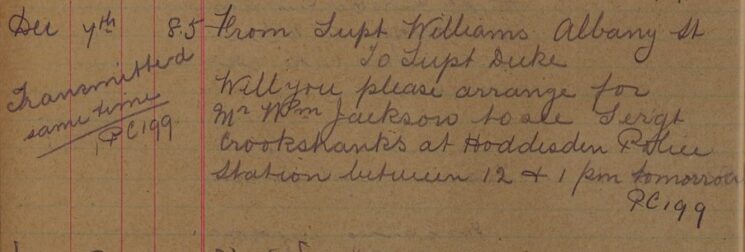 Dec 7th 8.5 From Supt Williams Albany St
To Supt Duke
Transmitted Will you please arrange for
same time Mr Wm Jackson to see Sergt
PC 199 Crookshanks at Hoddesden Police
Station between 12 & 1 pm tomorrow
PC 199